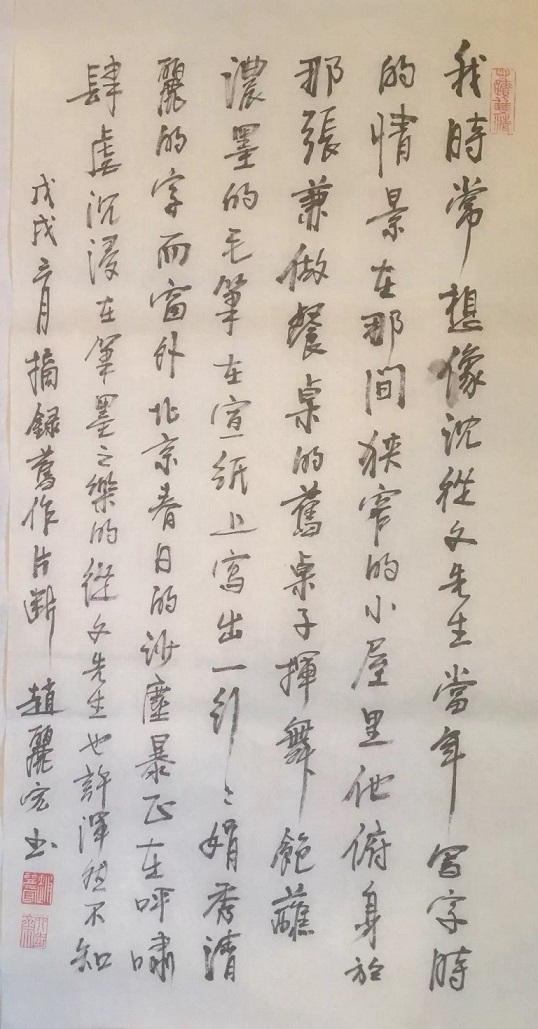 我時常想像沈從文先生當年寫字時
的情景在那間狹窄的小屋里他俯身於
那張兼做餐桌的舊桌子揮舞飽蘸
濃墨的毛筆在宣紙上寫出一行〻娟秀清
麗的字而窗外北京春日的沙塵暴正在呼嘯
肆虐沉浸在筆墨之樂的從文先生也許渾然不知
戊戌三月摘錄舊作片斷 趙麗宏书